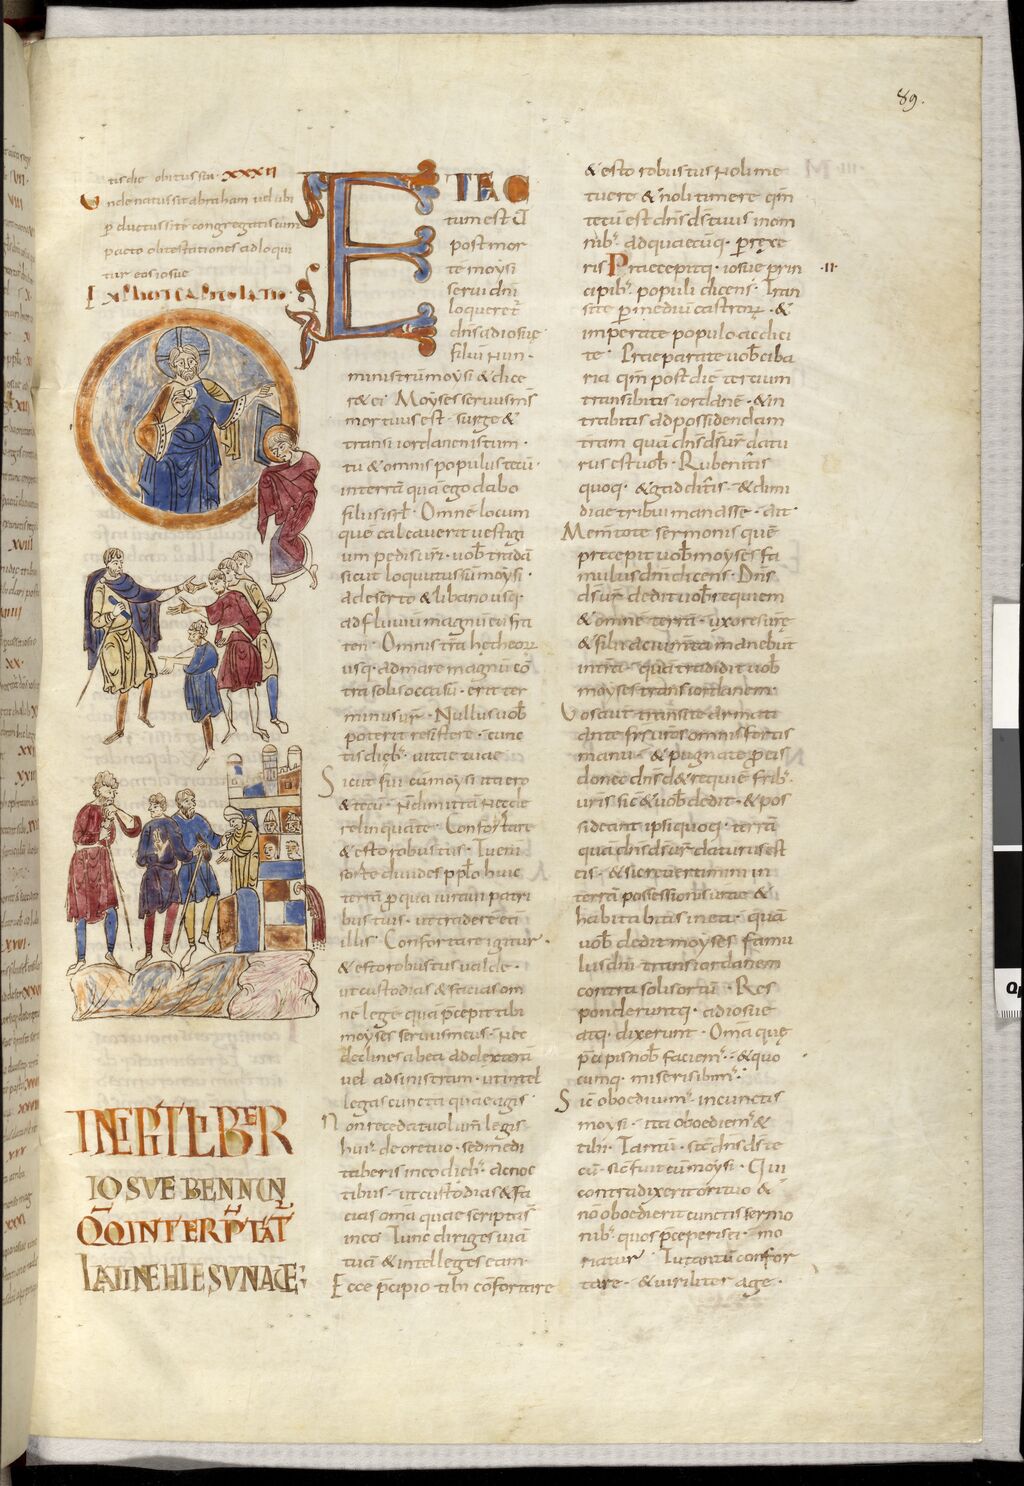 89.
tis die obitus sui · XXXII
Unde natus sit abraham vel ubi
p ductus sit & congregatis cum
pacto obtestationes adloqui
tur eos iosue
EXPLICIT CAPITULATIO
INCIPIT LIBER
IOSUE BENNUN
QD INTERPTAT
LATINE HIESUNAUE;
ET FAC
tum est ut
post mor
te moysi
servi dni
loqueret
dns ad iosue
filiu nun ·
ministru moysi & dice
r& ei · Moyses servus ms
mortuus est · surge &
transi iordanen istum ·
tu & omnis populus tecu ·
in terra qua ego dabo
filiis isrl · Omne locum
que calcaverit vestigi
um pedis vri · vob tradā
sicut loquutus sū moysi ·
a deserto & libano usq ·
ad fluviu magnu eufra
ten · Omnis tra hetheorꝝ
usq · ad mare magnu cō
tra solis occasū · erit ter
minus vr · Nullus vob
poterit resistere · cunc
tis dieb · vitae tuae
Sicut fui cu moysi ita ero
& tecu · N dimittā nec de
relinquā te · Confortare
& esto robustus · Tu eni
sorte divides pplo huic
terrā p qua iuravi patri
bus tuis · ut traderē eā
illis · Confortare igitur ·
& esto robustus valde ·
ut custodias & facias om
ne lege qua pcepit tibi
moyses servus meus · Nec
declines ab ea ad dexterā
vel ad sinistram · ut intel
legas cuncta quae agis ·
Non recedat volum legis
hui de ore tuo · sed medi
taberis in eo dieb · ac noc
tibus · ut custodias & fa
cias omā quae scripta s
in eo · Tunc diriges viā
tuā & intelleges eam ·
Ecce pcipio tibi confortare
& esto robustus Noli me
tuere & noli timere qm
tecu est dns ds tuus in om
nib · ad quaecuq · prexe
ris Praecepitq · iosue prin · II ·
cipib · populi dicens · Tran
site p mediu castrorꝝ · &
imperate populo ac dici
te · Praeparate vob ciba
ria qm post diē tertium
transibitis iordanē · & in
trabitis ad possidendam
tram quā dns ds vr datu
rus est vob · Rubenitis
quoq · & gadditis & dimi
diae tribui manasse · ait
Mementote sermonis quē
precepit vob moyses fa
mulus dni dicens · Dns
ds vr dedit vob requiem
& omnē terrā · uxores vrę
& filii ac iumta manebunt
in tra · quā tradidit vob
moyses trans iordanem
Vos aut transite armati
ante frs vros omnis fortis
manu · & pugnate p eis
donec dns d& requiē frib ·
vris sic & vob dedit · & pos
sideant ipsi quoq · terrā
quā dns ds vr daturus est
eis · & sic revertimini in
terrā possessionis vrae &
habitabitis in ea · quā
vob dedit moyses famu
lus dni trans iordanem
contra solis ortū · Res
ponderuntq · ad iosue
atq · dixerunt · Oma quę
pcipis nob faciem · & quo
cumq · miseris ibim ·
Sic oboedivim in cunctis
moysi · ita oboediem &
tibi · Tantū · sit dns ds te
cū · sic fuit cū moysi · Qui
contradixerit ori tuo &
nō oboedierit cunctis sermo
nib · quos pceperis ei · mo
riatur · Tu tantū confor
tare · & viriliter age ·